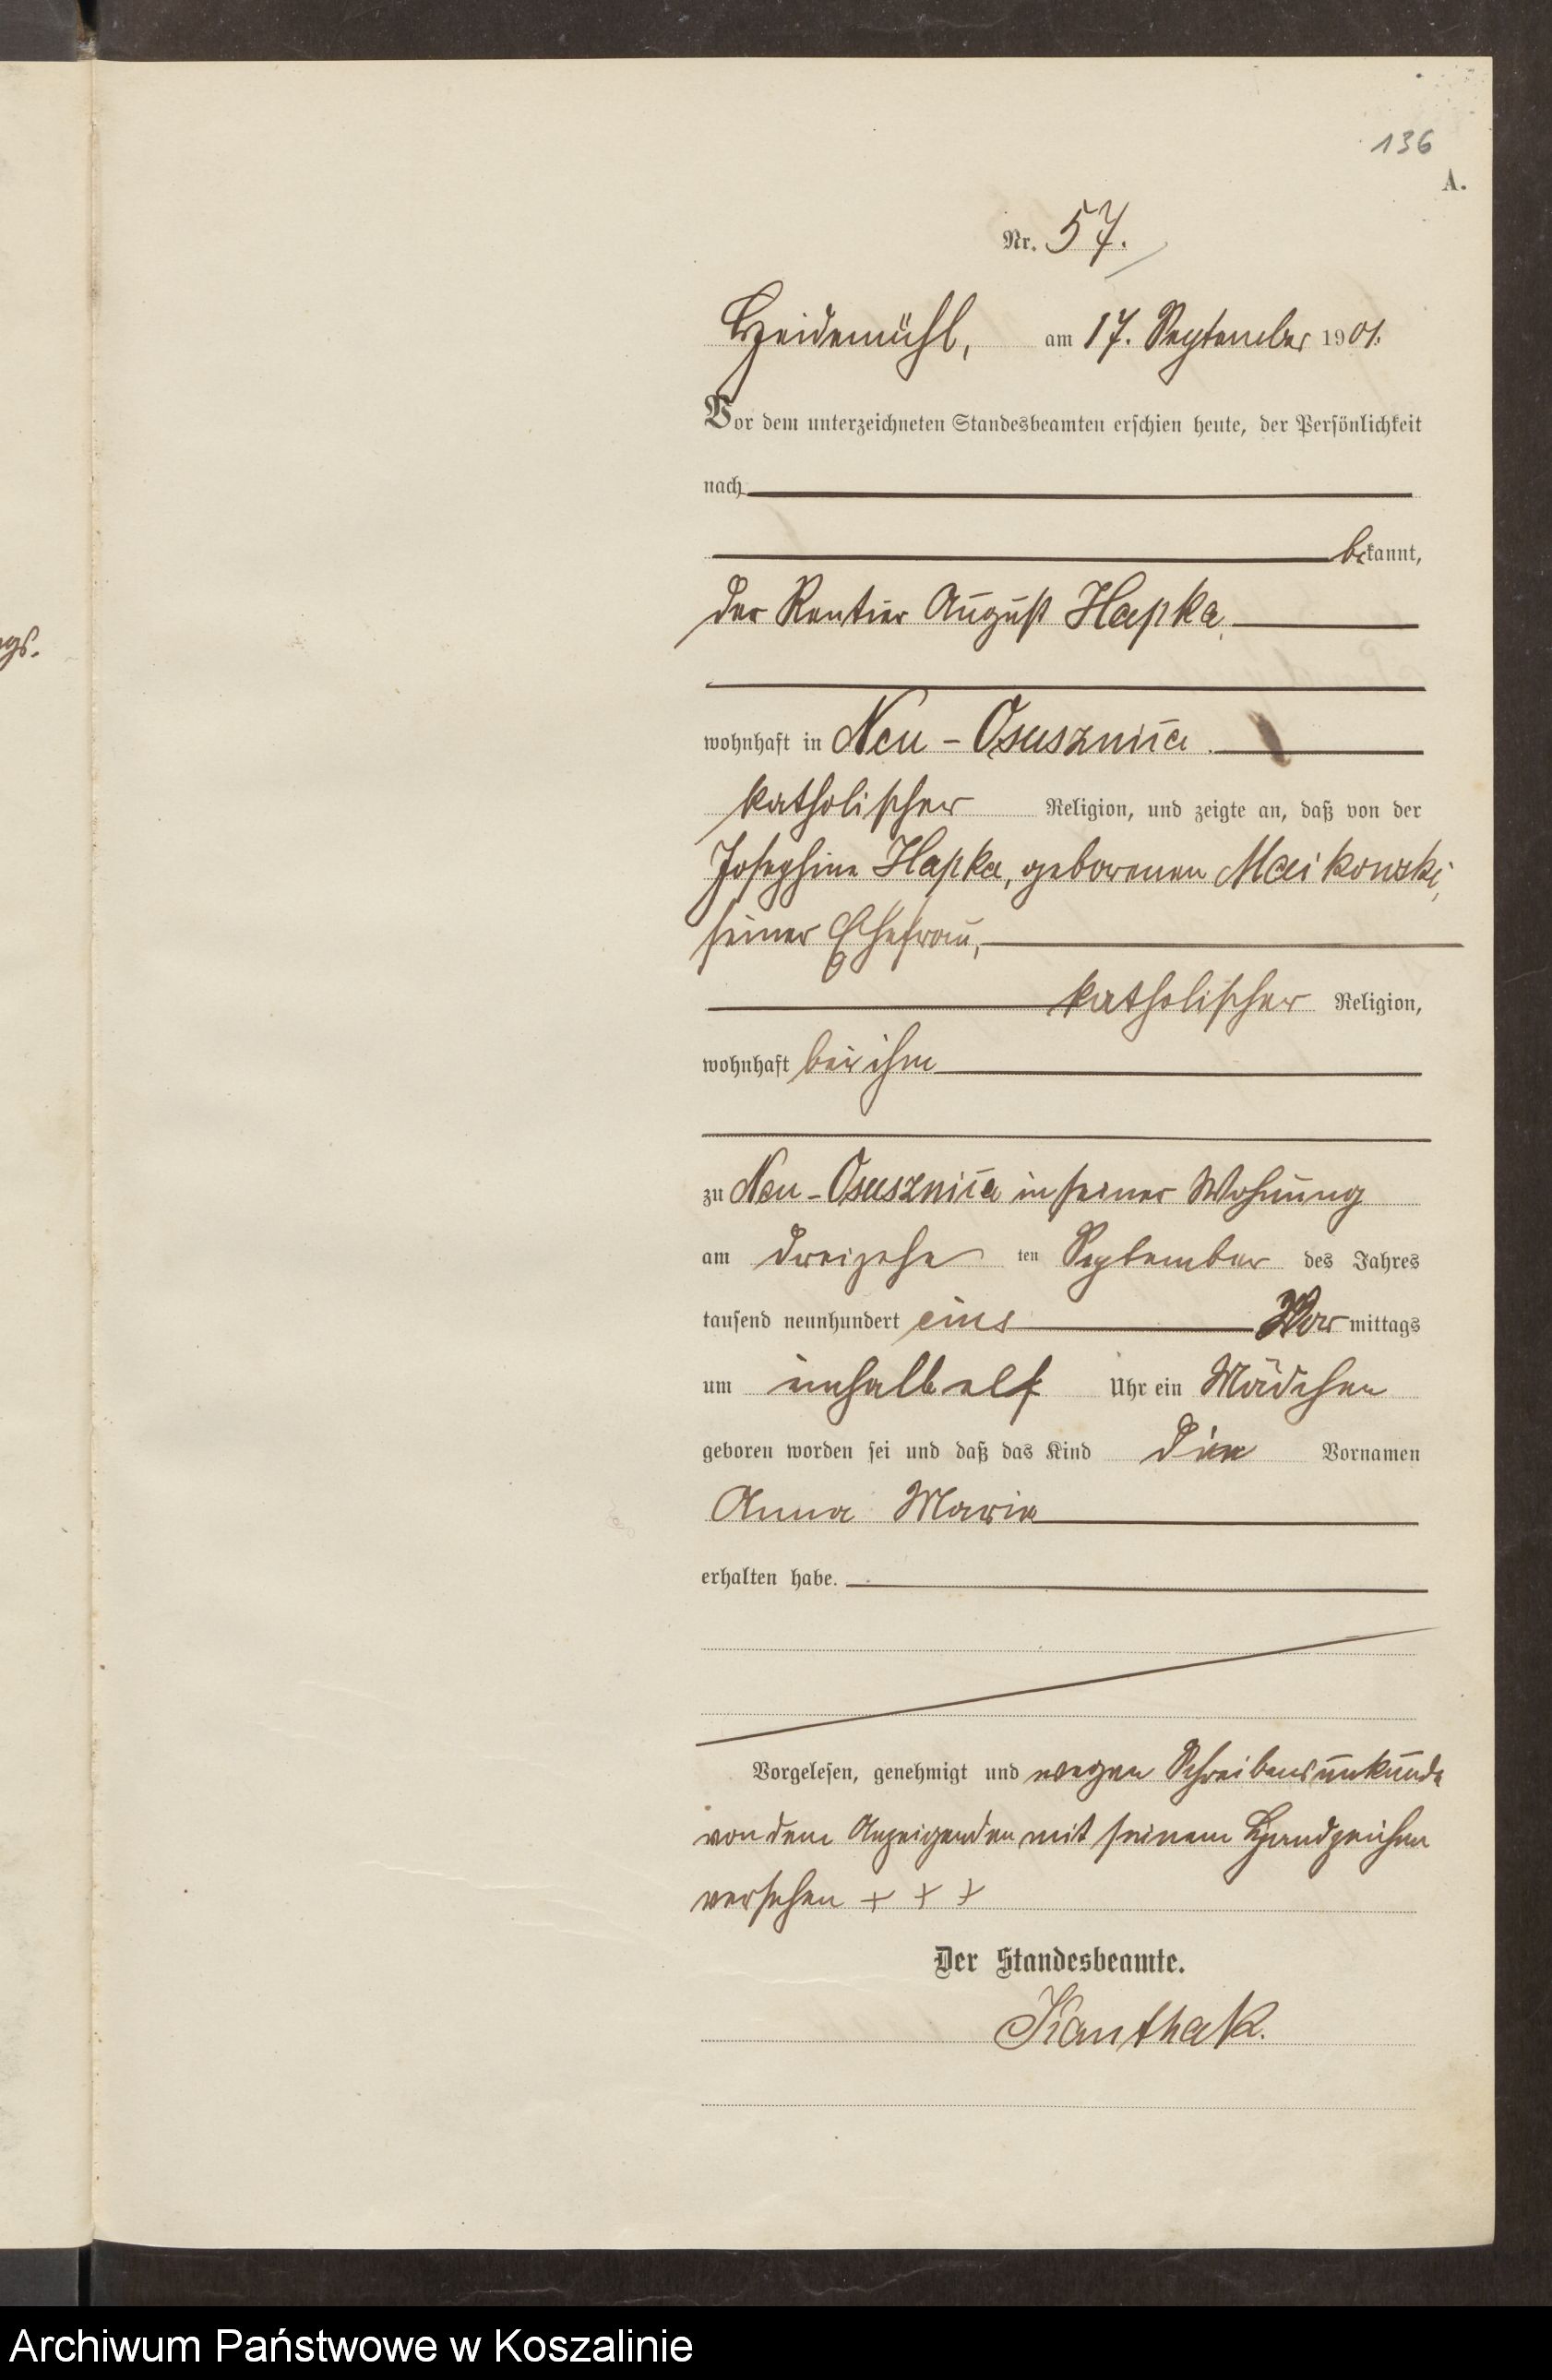 136
A.
Nr. 57.
Heidemühl, am 17. September 1901.
Vor dem unterzeichneten Standesbeamten erschien heute, der Persönlichkeit
nach
bekannt,
der Rentier August Hapka
wohnhaft in Neu-Osusznica
katholischer Religion, und zeigte an, daß von der
Josephine Hapka, geborenen Maikowski,
seiner Ehefrau,
katholischer Religion,
wohnhaft bei ihm
zu Neu-Osusznica in seiner Wohnung
am dreizehn ten September des Jahres
tausend neunhundert eins Vor mittags
um einhalb elf Uhr ein Mädchen
geboren worden sei und daß das Kind die Vornamen
Anna Maria
erhalten habe.
Vorgelesen, genehmigt und wegen Schreibensunkunde
von dem Anzeigenden mit seinem Handzeichen
versehen + + +
Der Standesbeamte.
Kanthak.
Archiwum Państwowe w Koszalinie